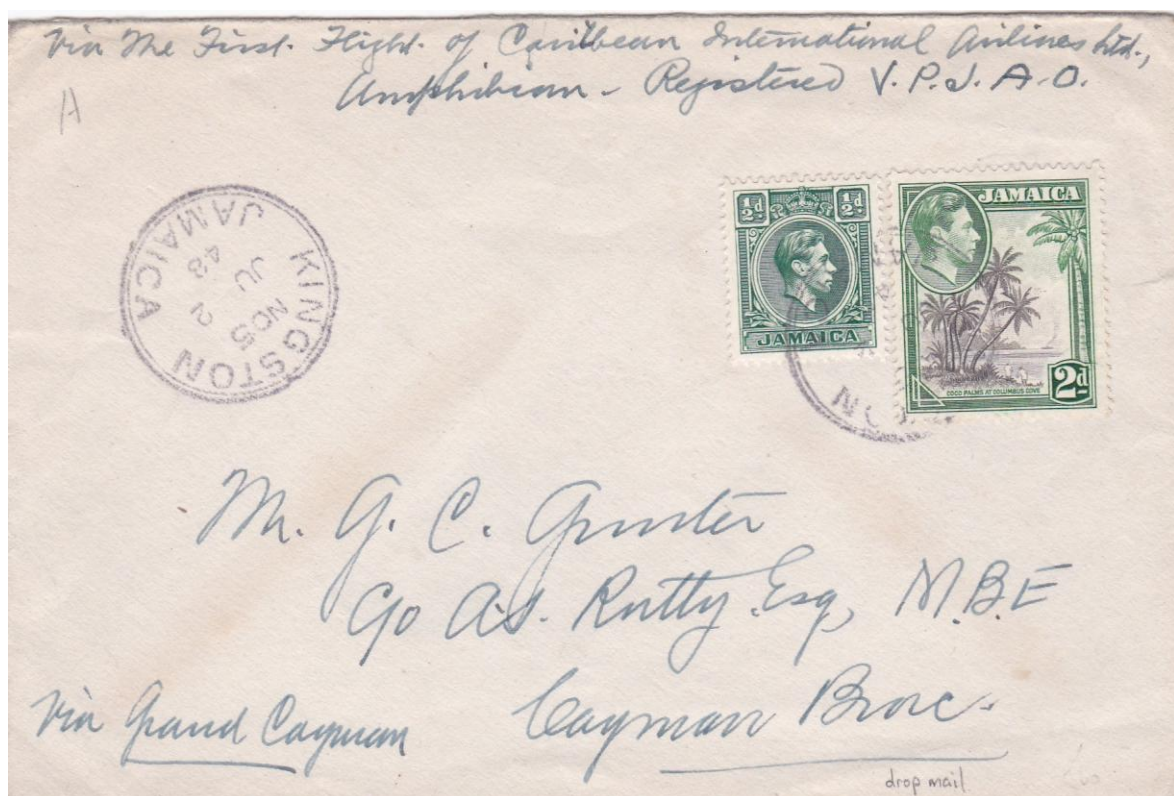 Via The First Flight of Caribbean International Airlines Ltd.,
Amphibian - Registered V.P.J.A.O.
A
KINGSTON
JAMAICA
NO5
JU 2
48
½d ½d
JAMAICA
JAMAICA
COCO PALMS AT COLUMBUS COVE
2d
ON
Mr. G. C.
C/o A.S. Rutty Esq, M.B.E
Cayman Brac.
Via Grand Cayman
drop mail